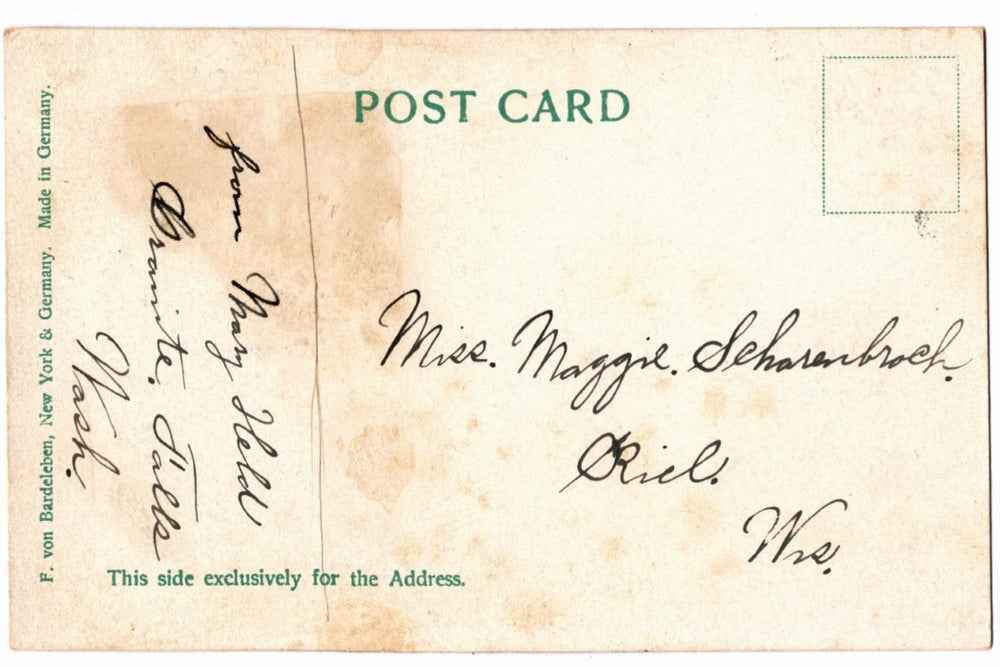 POST CARD
from Mary Held
Granite. Falls
Wash.
Miss. Maggie. Scharenbroch.
Riel.
Wis.
This side exclusively for the Address.
F. von Bardeleben, New York & Germany. Made in Germany.